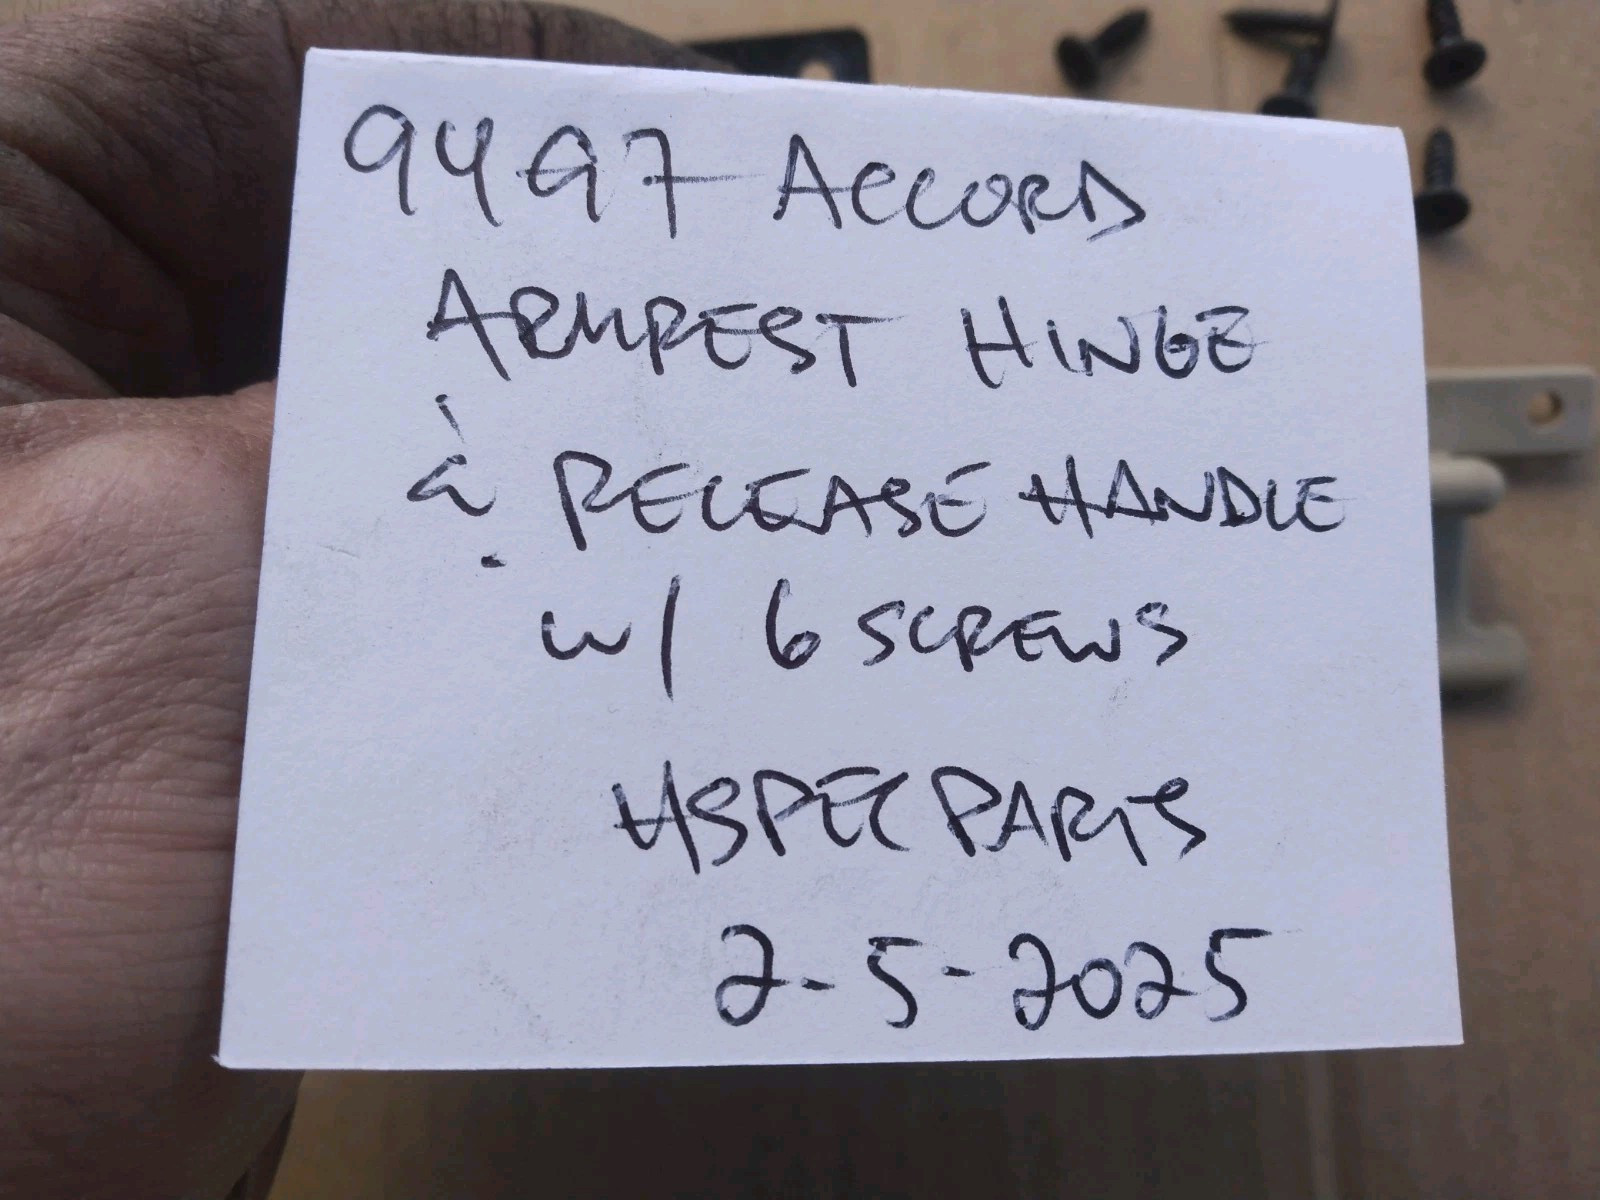 94 97 ACCORD
ARMREST HINGE
& RELEASE HANDLE
w/ 6 SCREWS
HSPEC PARTS
2-5-2025